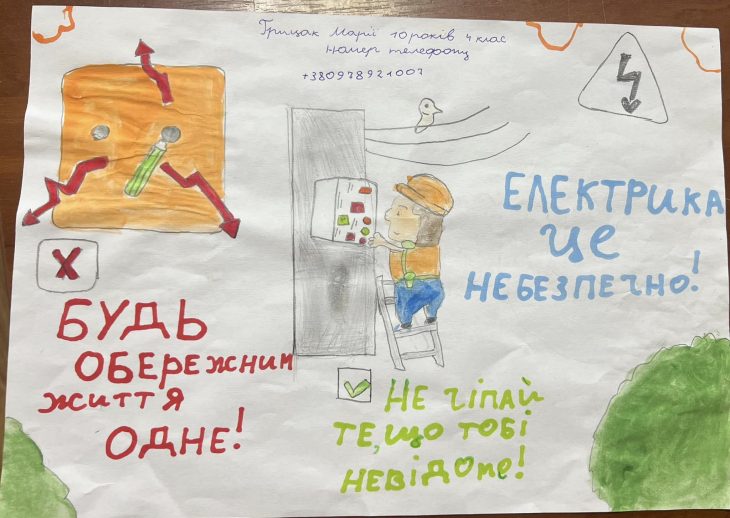 Грицак Марії 10 років 4 клас
номер телефону
+380978921007
ЕЛЕКТРИКА
ЦЕ
НЕБЕЗПЕЧНО!
Х
БУДЬ
ОБЕРЕЖНИМ
ЖИТТЯ
ОДНЕ!
НЕ ЧІПАЙ
ТЕ, ЩО ТОБІ
НЕВІДОМЕ!